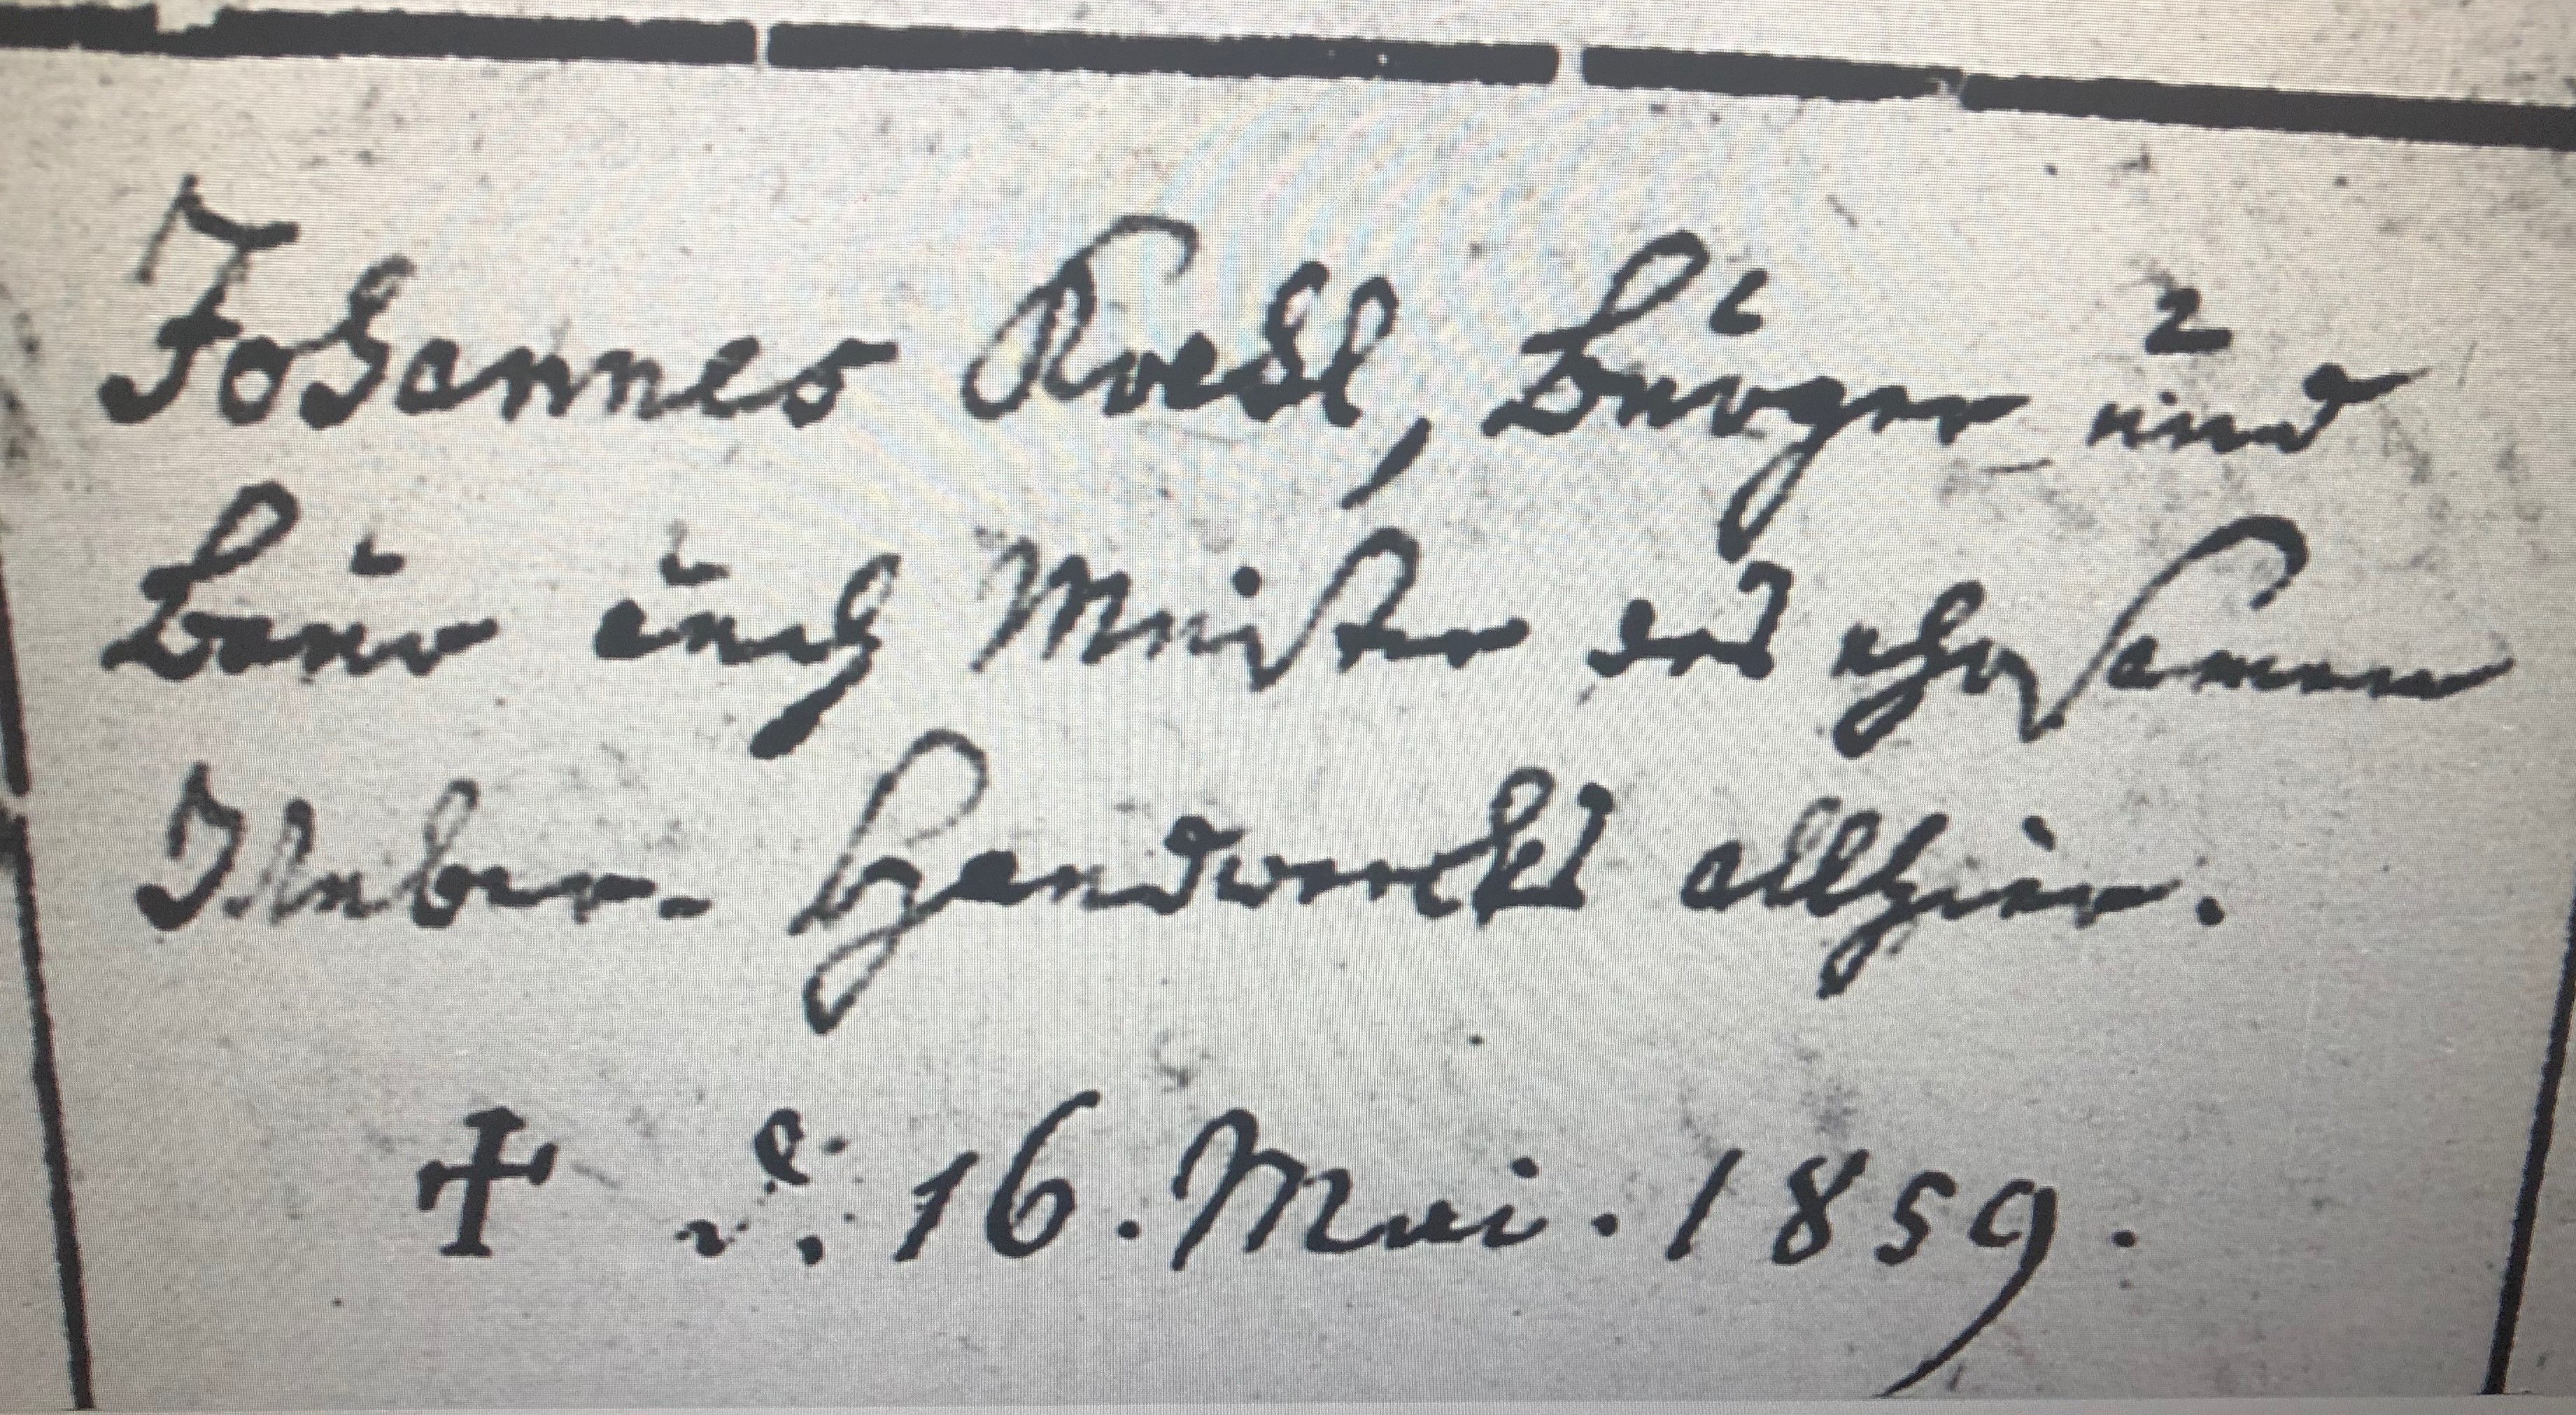 Johannes Roedl, Bürger und
Baur auch Meister des ehrsamen
Weber- Handwerks allhier.
† d. 16. Mai. 1859.